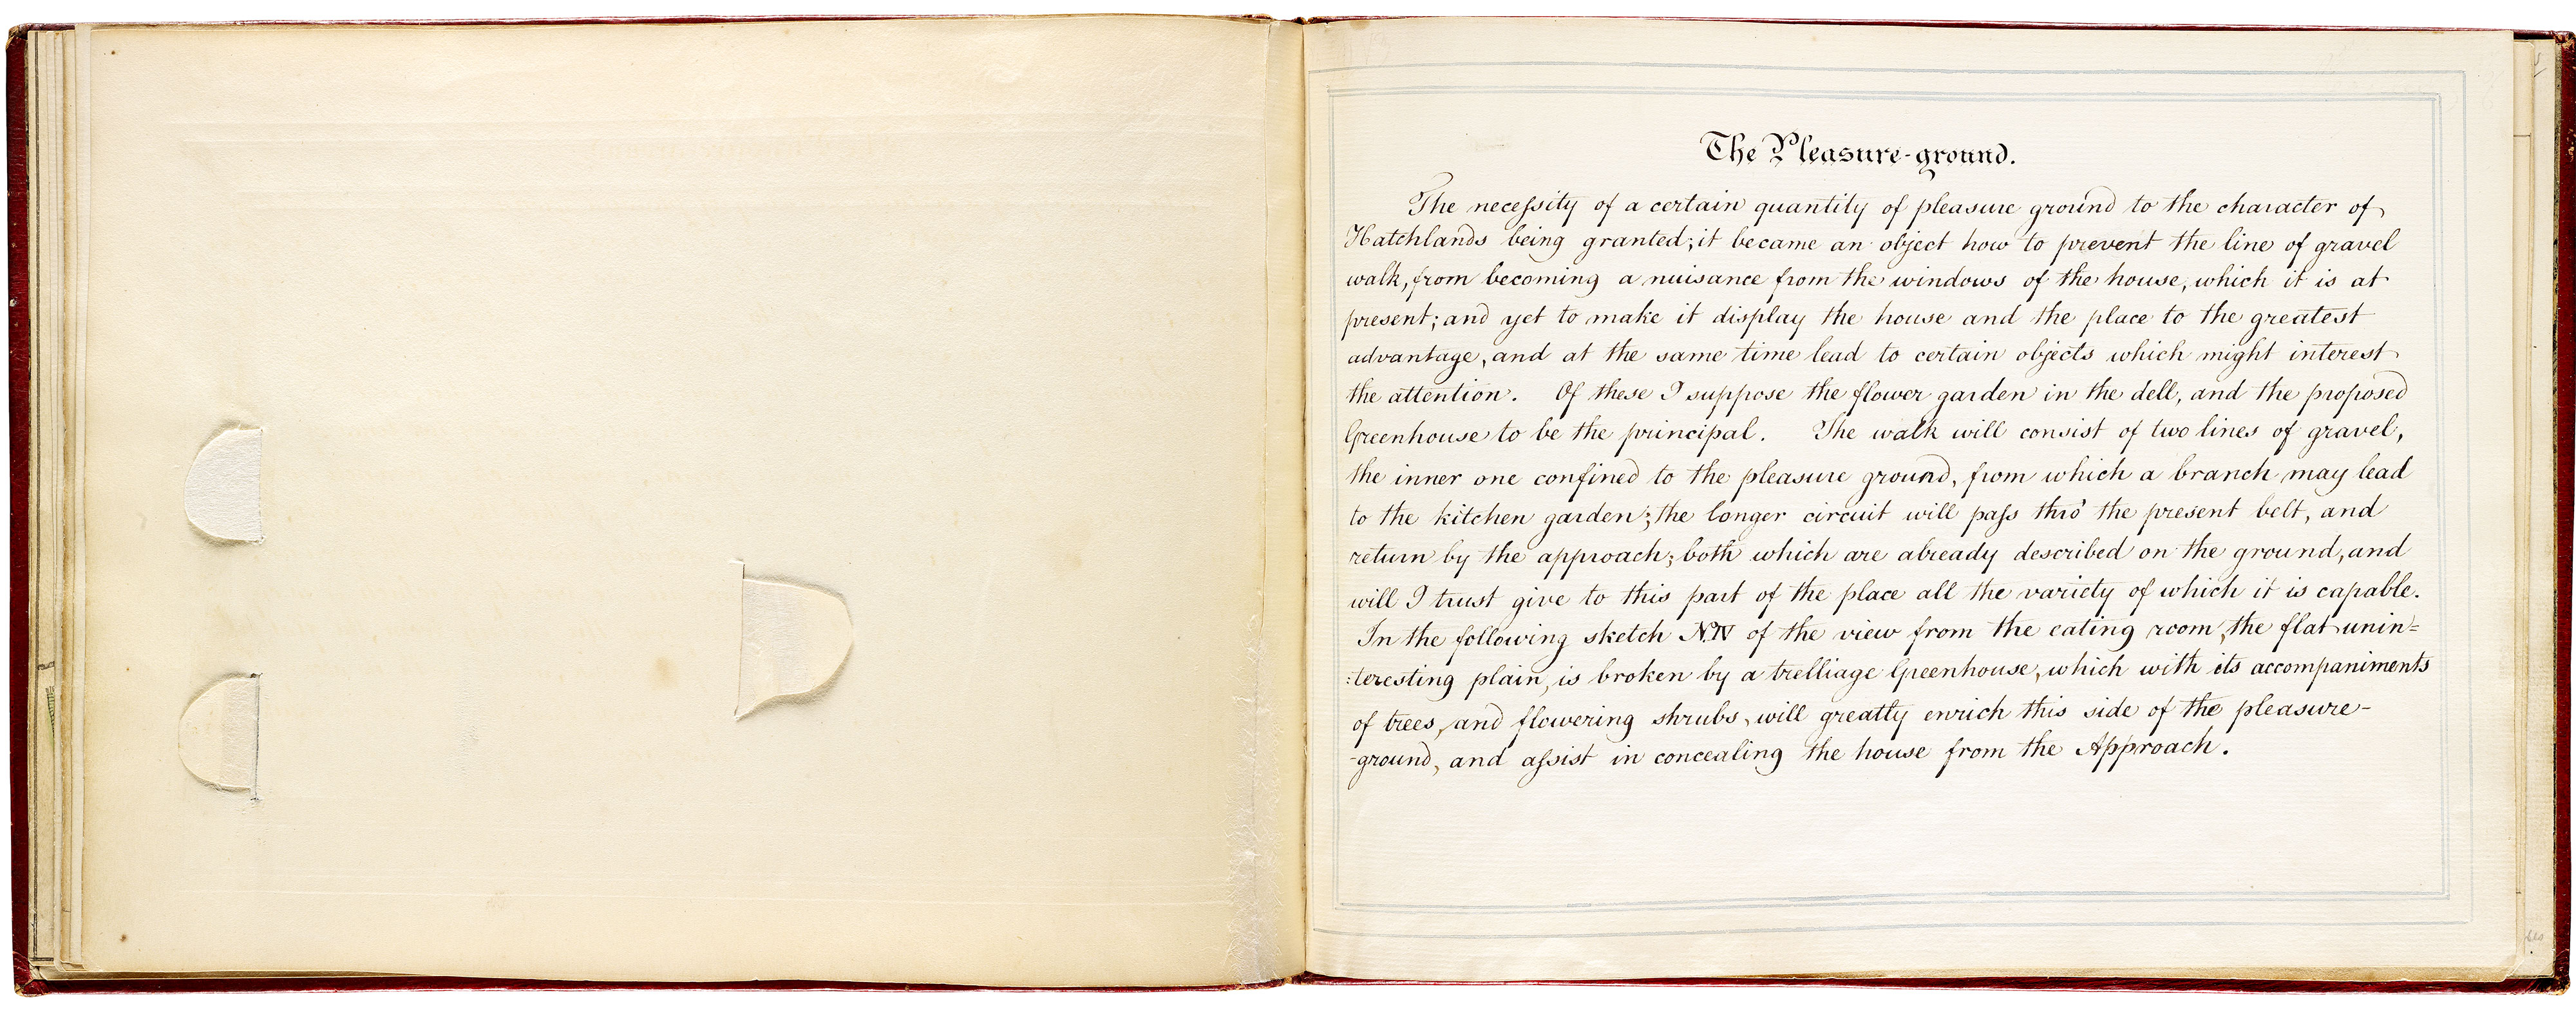 The Pleasure-ground.
The neceſsity of a certain quantity of pleasure ground to the character of
Hatchlands being granted; it became an object how to prevent the line of gravel
walk, from becoming a nuisance from the windows of the house, which it is at
present; and yet to make it display the house and the place to the greatest
advantage, and at the same time lead to certain objects which might interest
the attention. Of these I suppose the flower garden in the dell, and the proposed
Greenhouse to be the principal. The walk will consist of two lines of gravel,
the inner one confined to the pleasure ground, from which a branch may lead
to the kitchen garden; the longer circuit will paſs thro' the present belt, and
return by the approach; both which are already described on the ground, and
will I trust give to this part of the place all the variety of which it is capable.
In the following sketch N.IV of the view from the eating room, the flat unin=
:teresting plain, is broken by a trelliage Greenhouse, which with its accompaniments
of trees, and flowering shrubs, will greatly enrich this side of the pleasure-
-ground, and aſsist in concealing the house from the Approach.